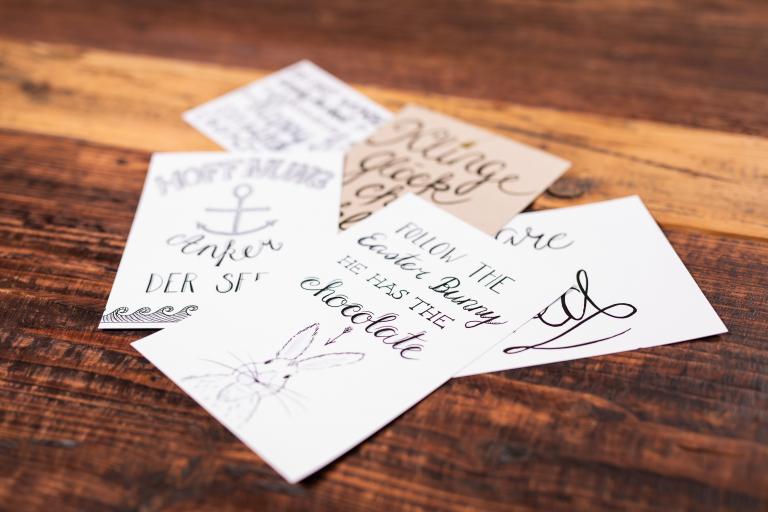 HOFFNUNG
Anker
DER SEE
Klinge
glöck
ch
are
FOLLOW THE
Easter Bunny
HE HAS THE
chocolate